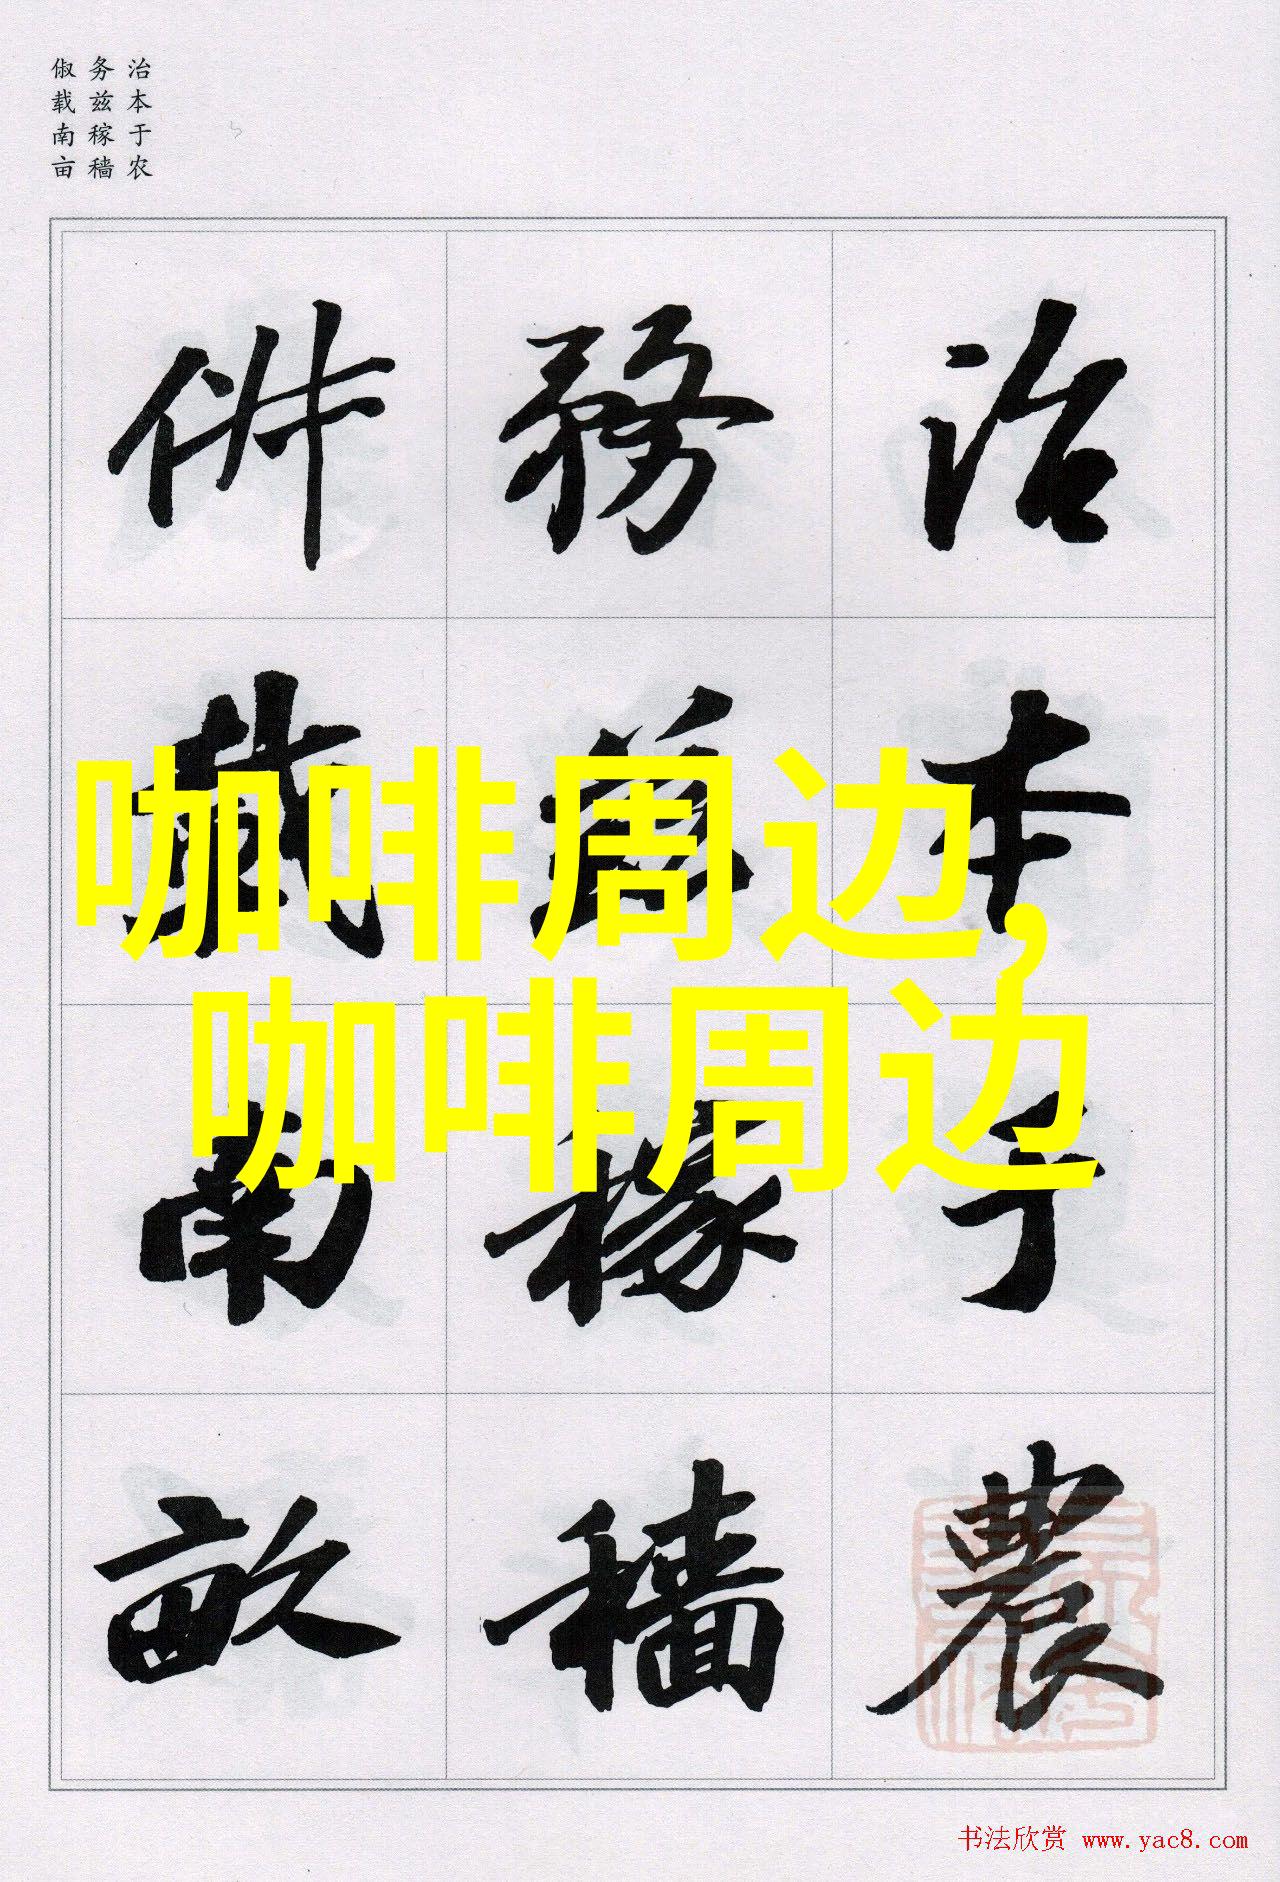 治本于农
务兹稼穑
俶载南亩
治本于農
務茲稼穡
俶載南畝
咖啡周边,
咖啡周边
书法欣赏 www.yac8.com